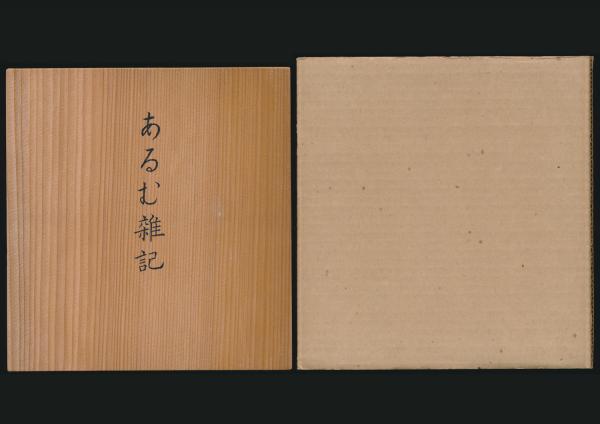 あるむ雜記